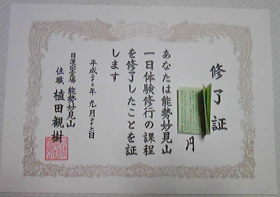 修了証
円
あなたは能勢妙見山
一日体験修行の課程
を修了したことを証
します
平成二十二年 九月二十二日
日蓮宗霊場 能勢妙見山
住職 植田観樹